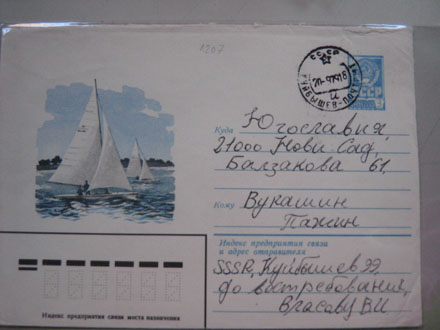 1207
СССР
КУЙБЫШЕВ-ПОЧТАМТ
Куда Югославия,
21000 Нови Сад,
Балзакова 61.
Кому Вукашин
Пажин
Индекс предприятия связи
и адрес отправителя
SSSR, Куйбышев 99,
до востребования,
Власову ВИ
Индекс предприятия связи места назначения